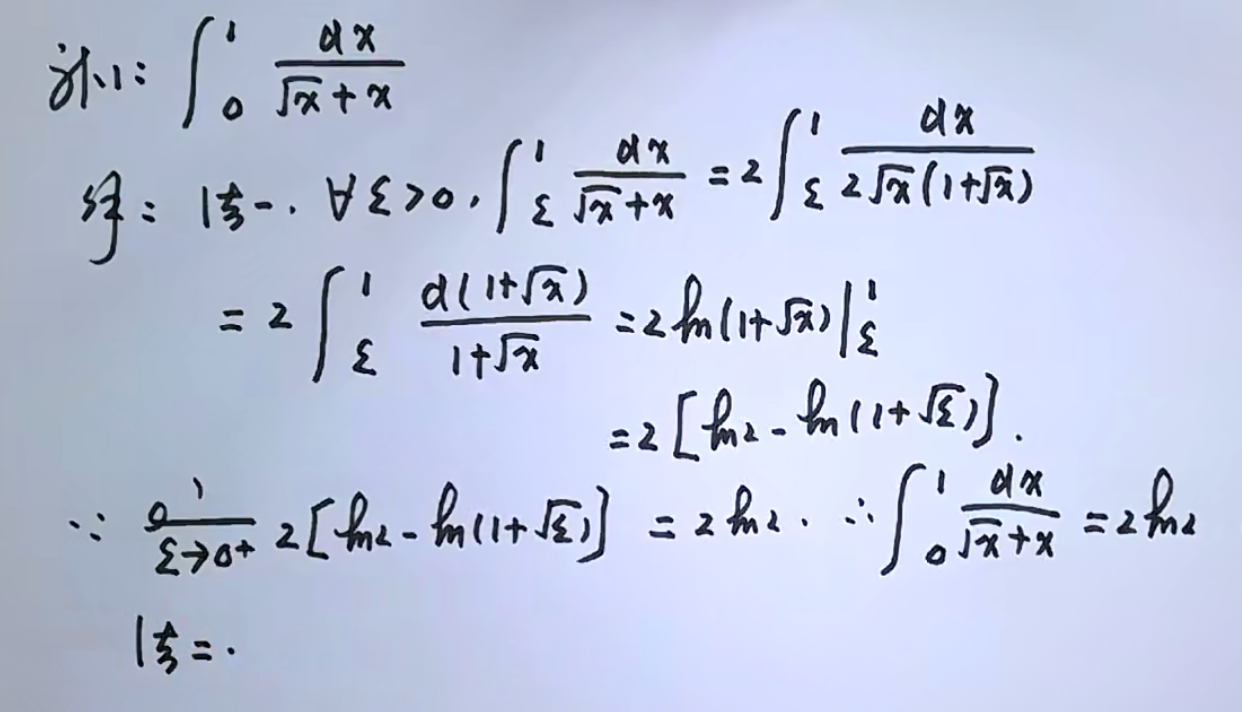 例1: ∫₀¹ dx/(√x+x)
解: 法一. ∀ε>0, ∫_ε^1 dx/(√x+x) = 2∫_ε^1 dx/(2√x(1+√x))
= 2∫_ε^1 d(1+√x)/(1+√x) = 2ln(1+√x)|_ε^1
= 2[ln2-ln(1+√ε)].
∵ lim_{ε→0+} 2[ln2-ln(1+√ε)] = 2ln2. ∴ ∫₀¹ dx/(√x+x) = 2ln2
法二.